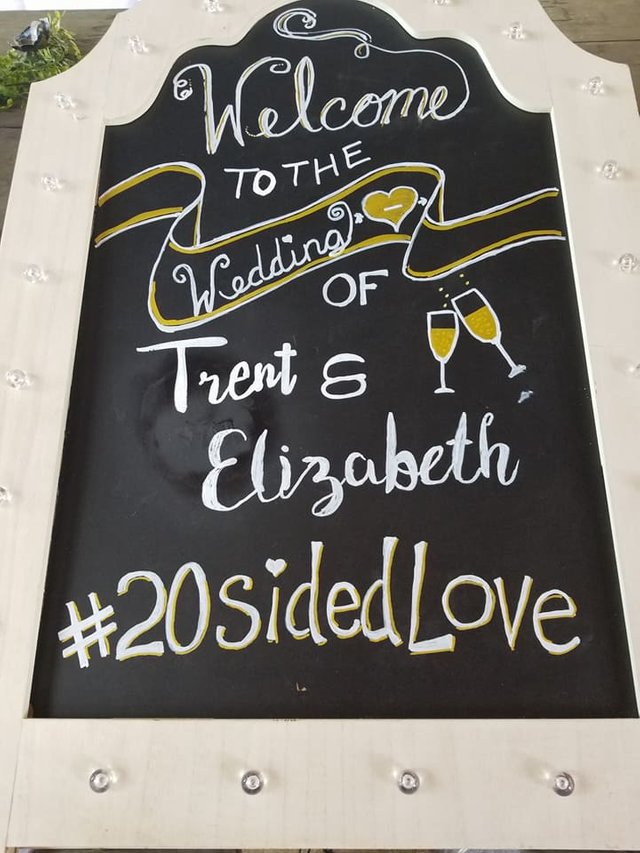 Welcome
TO THE
Wedding
OF
Trent &
Elizabeth
#20sidedLove